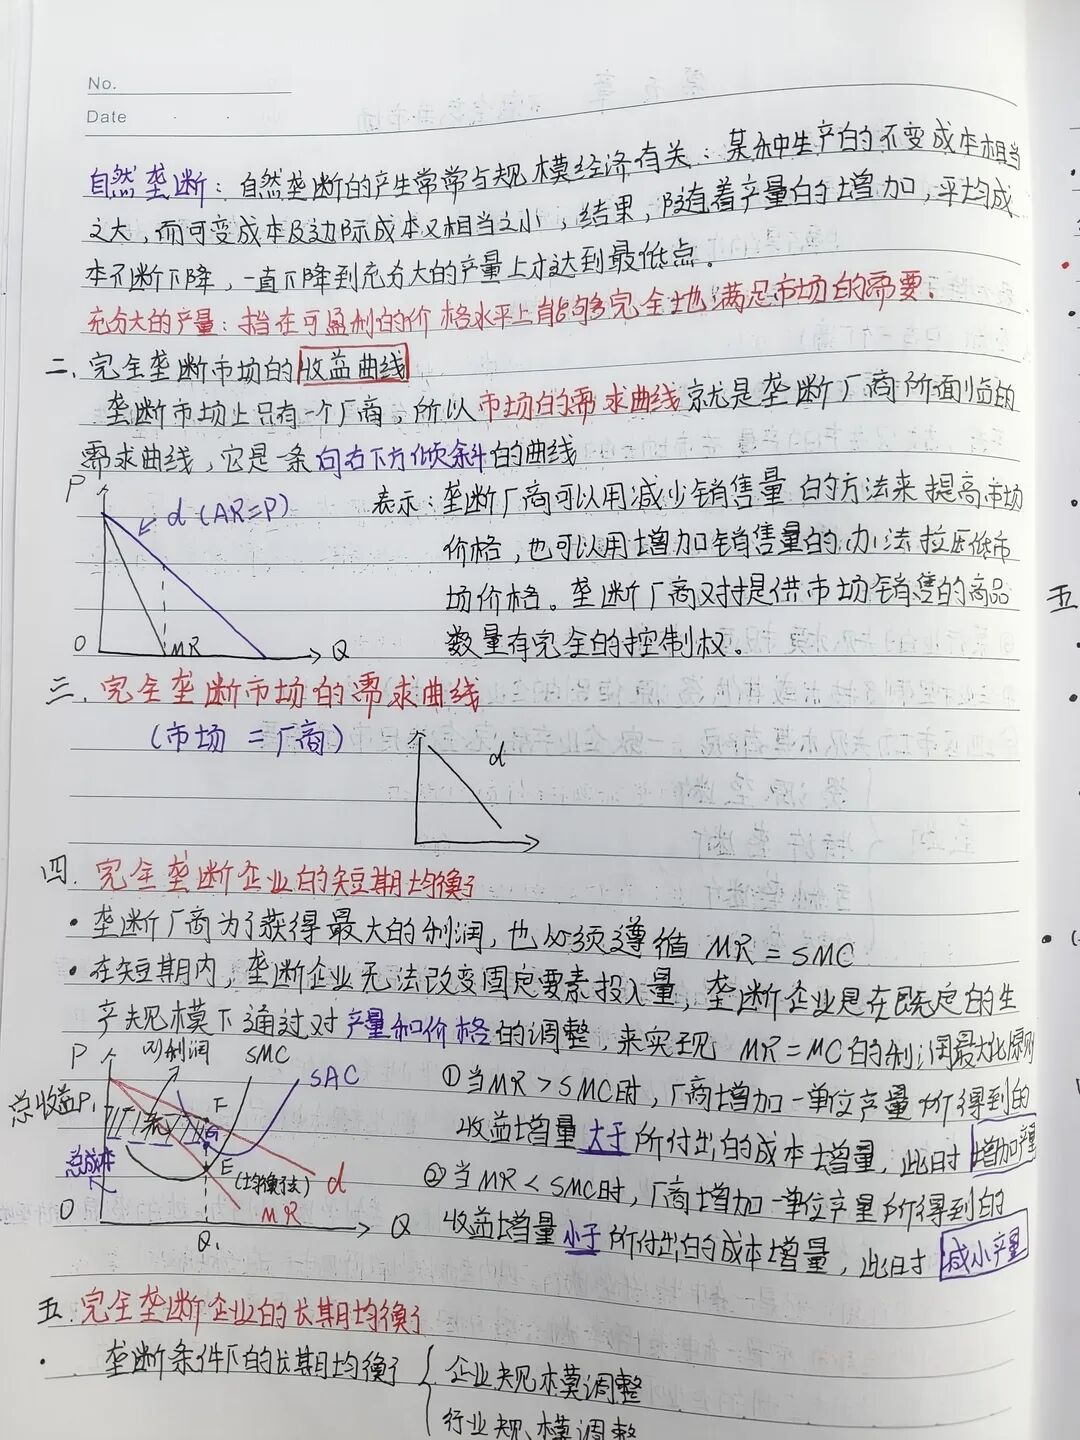 No.
Date
自然垄断：自然垄断的产生常常与规模经济有关：某种生产的不变成本相当
之大，而可变成本及边际成本又相当之小，结果，随着产量的增加，平均成
本不断下降，一直下降到充分大的产量上才达到最低点。
充分大的产量：指在可盈利的价格水平上能够完全地满足市场的需要。
二、完全垄断市场的收益曲线
垄断市场上只有一个厂商，所以市场的需求曲线就是垄断厂商所面临的
需求曲线，它是一条向右下方倾斜的曲线
P
d (AR=P)
表示：垄断厂商可以用减少销售量的方法来提高市场
价格，也可以用增加销售量的办法拉压低市
场价格。垄断厂商又对提供市场销售的商品
数量有完全的控制权。
O
MR
Q
三、完全垄断市场的需求曲线
(市场 = 厂商)
d
四. 完全垄断企业的短期均衡
• 垄断厂商为了获得最大的利润，也必须遵循 MR = SMC
• 在短期内，垄断企业无法改变固定要素投入量，垄断企业是在既定的生
产规模下通过对产量和价格的调整，来实现 MR = MC的利润最大化原则
P
利润
SMC
SAC
总收益P₁
F
G
E
(均衡点)
总成本
d
MR
O
Q₁
Q
①当MR > SMC时，厂商增加一单位产量所得到的
收益增量大于所付出的成本增量，此时增加产量
②当MR < SMC时，厂商增加一单位产量所得到的
收益增量小于所付出的成本增量，此时减小产量
五. 完全垄断企业的长期均衡
• 垄断条件下的长期均衡
企业规模调整
行业规模调整
五